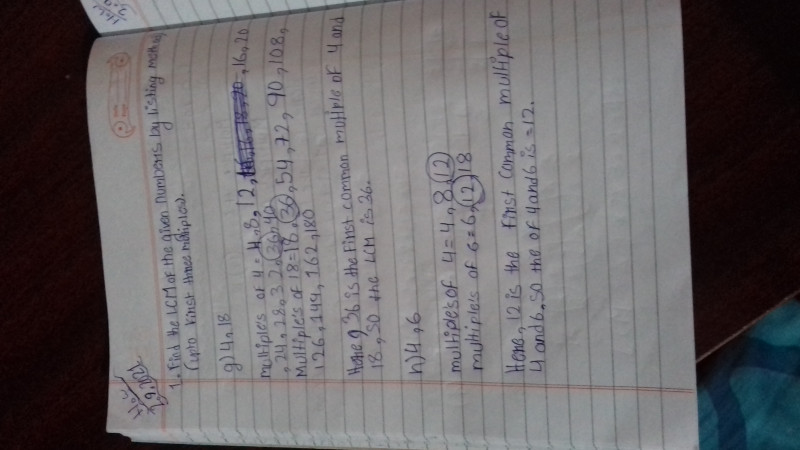 1. Find the LCM of the given numbers by listing method
(upto first three multiples).
g) 4, 18
multiples of 4 = 4, 8, 12, 16, 20
, 24, 28, 32, 36, 40
Multiples of 18 = 18, 36, 54, 72, 90, 108,
126, 144, 162, 180
Here, 36 is the first common multiple of 4 and
18, so the LCM is 36.
h) 4, 6
multiples of 4 = 4, 8, 12
multiples of 6 = 6, 12, 18
Here, 12 is the first common multiple of
4 and 6, so the of 4 and 6 is = 12.